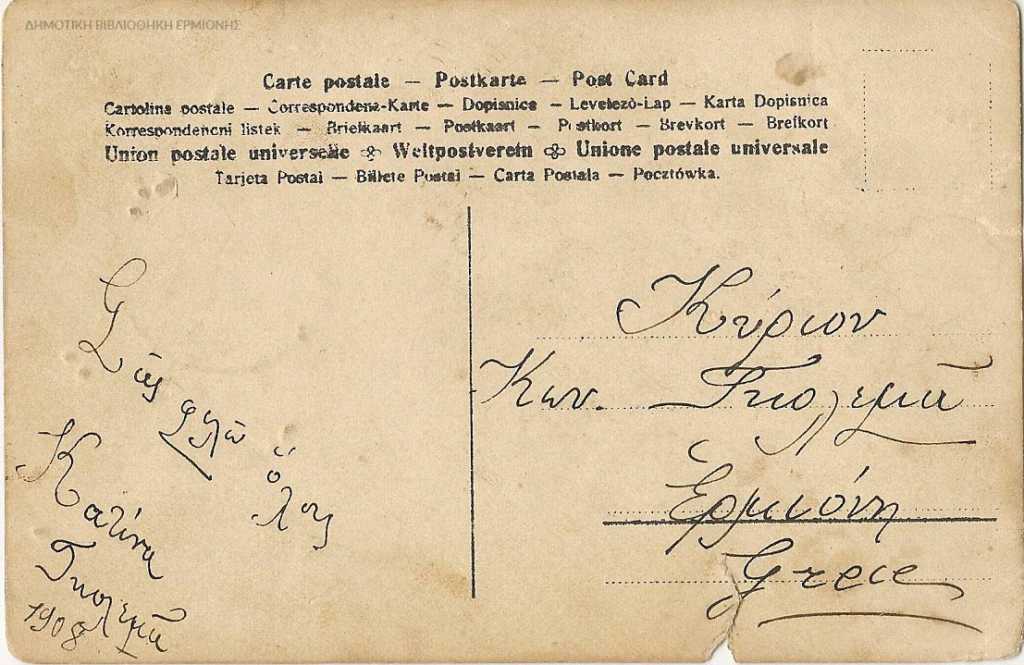 ΔΗΜΟΤΙΚΗ ΒΙΒΛΙΟΘΗΚΗ ΕΡΜΙΟΝΗΣ
Carte postale — Postkarte — Post Card
Cartolina postale — Correspondenz-Karte — Dopisnica — Levelezö-Lap — Karta Dopisnica
Korrespondencni listek — Briefkaart — Postkaart — Postkort — Brevkort — Brefkort
Union postale universelle Weltpostverein Unione postale universale
Tarjeta Postal — Billete Postal — Carta Postala — Pocztówka.
Σᾶς φιλῶ
ὅλους
Κατίνα
Γκολεμᾶ
1908
Κύριον
Κων. Γκολεμᾶ
Ἑρμιόνη
Grece